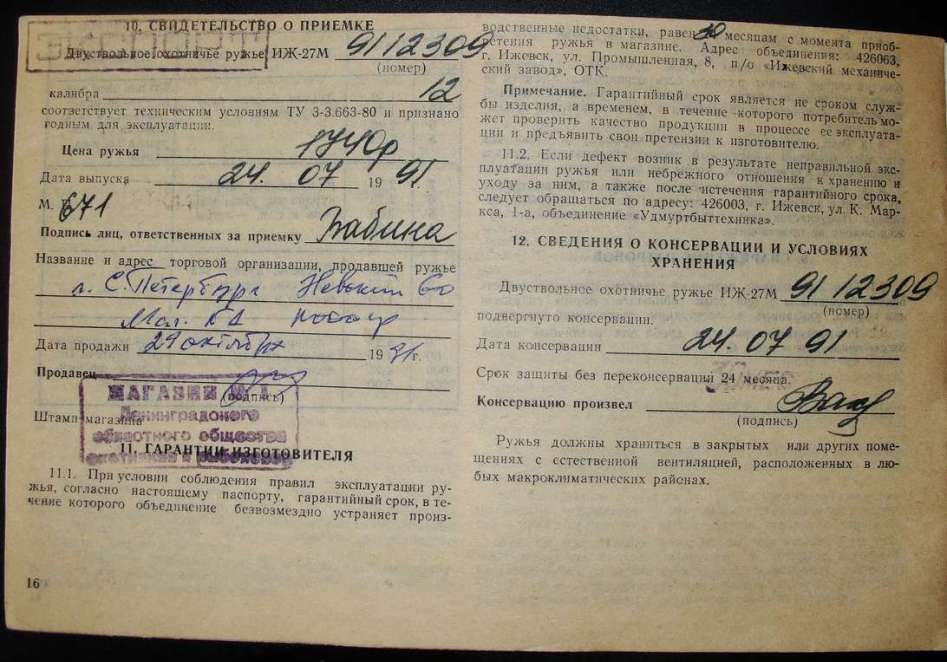 10. СВИДЕТЕЛЬСТВО О ПРИЕМКЕ
Двуствольное охотничье ружье ИЖ-27М 9112309
(номер)
калибра 12
соответствует техническим условиям ТУ 3-3.663-80 и признано
годным для эксплуатации.
Цена ружья 1740р
Дата выпуска 24. 07 1991.
М. 671
Подпись лиц, ответственных за приемку Бабина
Название и адрес торговой организации, продавшей ружье
г. С. Петербург Невский 60
Дата продажи 29 октября 1991г.
Продавец
(подпись)
МАГАЗИН
Ленинградского
Штамп магазина
областного общества
охотников и рыболовов
11. ГАРАНТИИ ИЗГОТОВИТЕЛЯ
11.1. При условии соблюдения правил эксплуатации ру-
жья, согласно настоящему паспорту, гарантийный срок, в те-
чение которого объединение безвозмездно устраняет произ-
16
водственные недостатки, равен 30 месяцам с момента приоб-
ретения ружья в магазине. Адрес объединения: 426063,
г. Ижевск, ул. Промышленная, 8, п/о «Ижевский механиче-
ский завод», ОТК.
Примечание. Гарантийный срок является не сроком служ-
бы изделия, а временем, в течение которого потребитель мо-
жет проверить качество продукции в процессе ее эксплуата-
ции и предъявить свои претензии к изготовителю.
11.2. Если дефект возник в результате неправильной экс-
плуатации ружья или небрежного отношения к хранению и
уходу за ним, а также после истечения гарантийного срока,
следует обращаться по адресу: 426003, г. Ижевск, ул. К. Мар-
кса, 1-а, объединение «Удмуртбыттехника».
12. СВЕДЕНИЯ О КОНСЕРВАЦИИ И УСЛОВИЯХ
ХРАНЕНИЯ
Двуствольное охотничье ружье ИЖ-27М 9112309
(номер)
подвергнуто консервации.
Дата консервации 24. 07 91
Срок защиты без переконсервации 24 месяца.
Консервацию произвел
(подпись)
Ружья должны храниться в закрытых или других поме-
щениях с естественной вентиляцией, расположенных в лю-
бых макроклиматических районах.